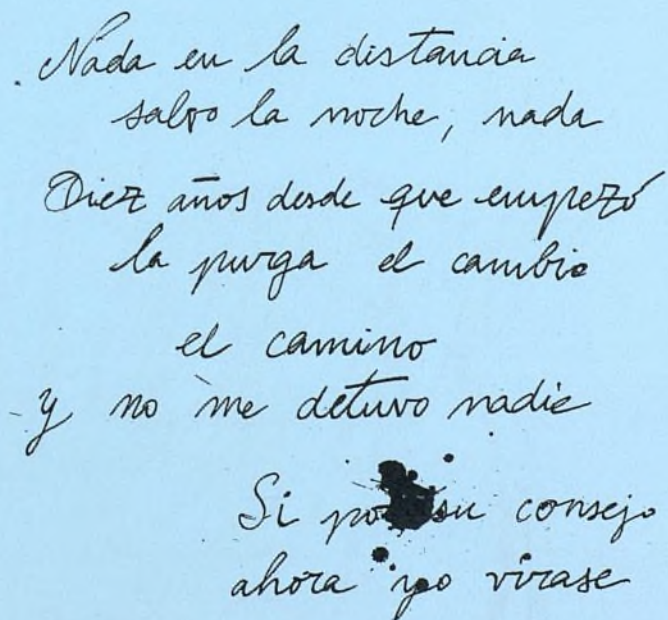 Nada en la distancia
salvo la noche, nada
Diez años desde que empezó
la purga el cambio
el camino
y no me detuvo nadie
Si por su consejo
ahora yo virase